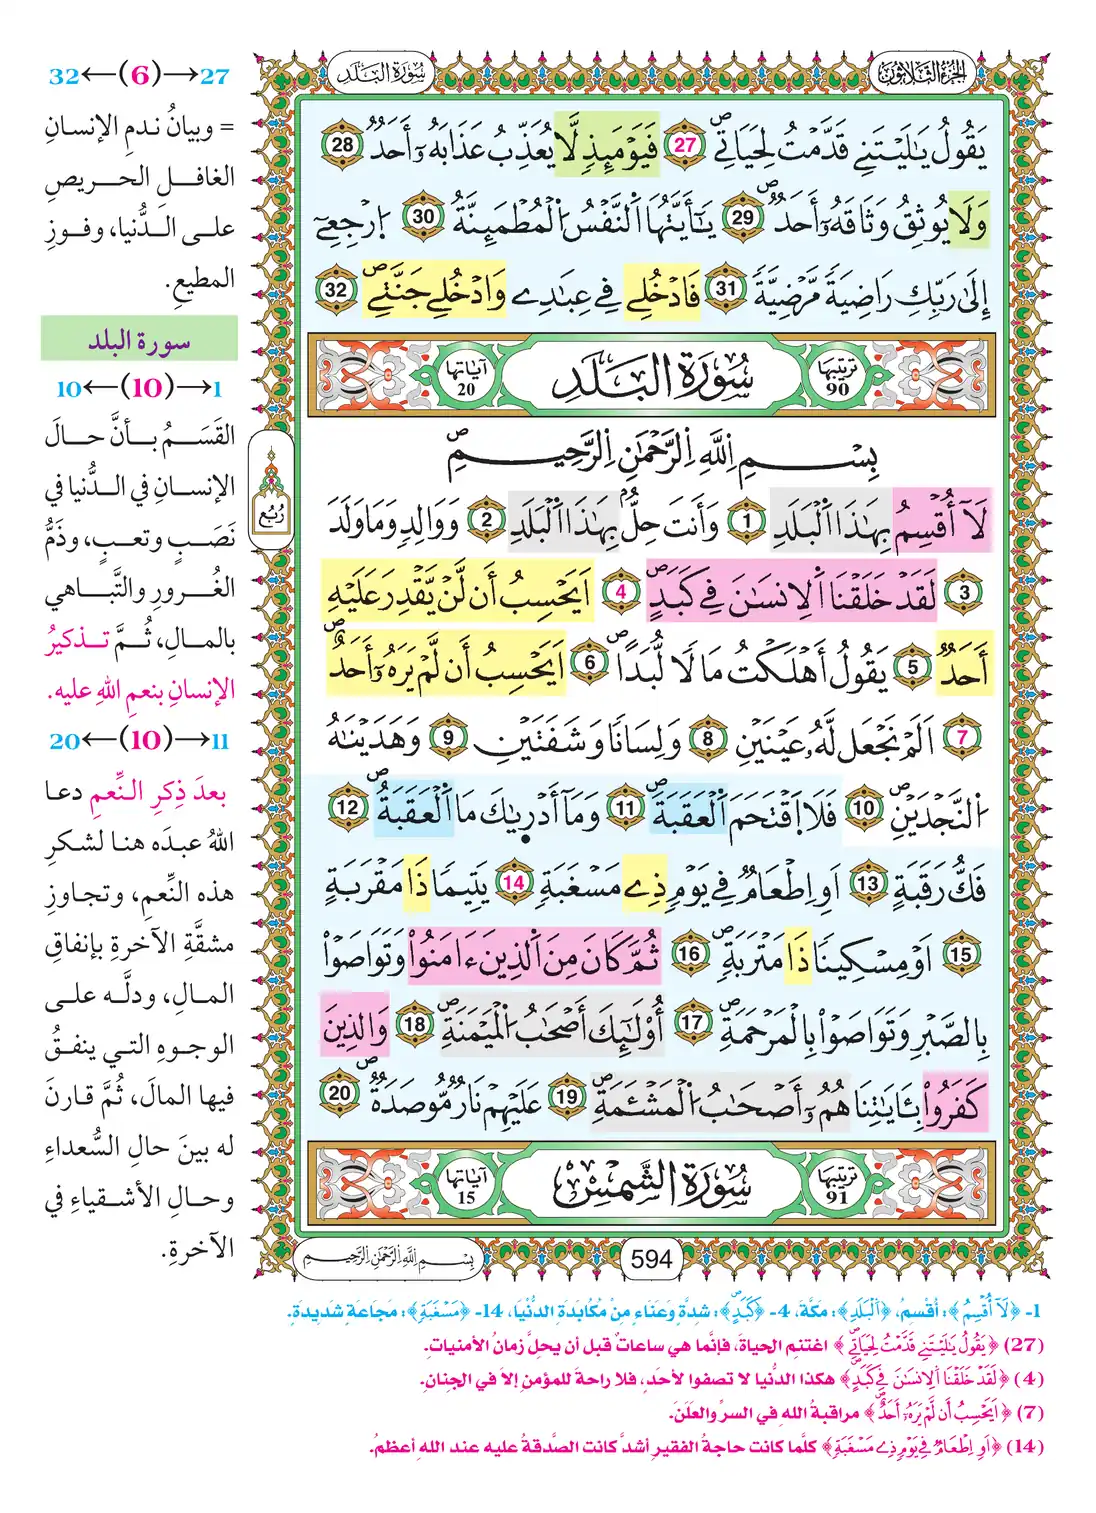 الجزء الثلاثون
سورة البلد
يَقُولُ يَٰلَيْتَنِے قَدَّمْتُ لِحَيَاتِےۖ 27 فَيَوْمَئِذٖ لَّا يُعَذِّبُ عَذَابَهُۥٓ أَحَدٞ 28
وَلَا يُوثِقُ وَثَاقَهُۥٓ أَحَدٞۖ 29 يَٰٓأَيَّتُهَا اَ۬لنَّفْسُ اُ۬لْمُطْمَئِنَّةُ 30 اُ۪رْجِعِےٓ
إِلَىٰ رَبِّكِ رَاضِيَةٗ مَّرْضِيَّةٗ 31 فَادْخُلِے فِے عِبَٰدِے وَادْخُلِے جَنَّتِےۖ 32
ترتيبها 90
سُورَةُ البَلَدِ
آياتها 20
بِسْمِ اِ۬للَّهِ اِ۬لرَّحْمَٰنِ اِ۬لرَّحِيمِۖ
لَآ أُقْسِمُ بِهَٰذَا اَ۬لْبَلَدِ 1 وَأَنتَ حِلُّۢ بِهَٰذَا اَ۬لْبَلَدِ 2 وَوَالِدٖ وَمَا وَلَدَ
3 لَقَدْ خَلَقْنَا اَ۬لِانسَٰنَ فِے كَبَدٍۖ 4 اَيَحْسِبُ أَن لَّنْ يَّقْدِرَ عَلَيْهِ
أَحَدٞ 5 يَقُولُ أَهْلَكْتُ مَالٗا لُّبَداًۖ 6 اَيَحْسِبُ أَن لَّمْ يَرَهُۥٓ أَحَدٌۖ
7 اَلَمْ نَجْعَل لَّهُۥ عَيْنَيْنِ 8 وَلِسَانٗا وَشَفَتَيْنِ 9 وَهَدَيْنَٰهُ
اُ۬لنَّجْدَيْنِۖ 10 فَلَا اَ۪قْتَحَمَ اَ۬لْعَقَبَةَۖ 11 وَمَآ أَدْر۪يٰكَ مَا اَ۬لْعَقَبَةُۖ 12
فَكُّ رَقَبَةٍ 13 اَوِ اِطْعَٰمٞ فِے يَوْمٖ ذِے مَسْغَبَةٖ 14 يَتِيماٗ ذَا مَقْرَبَةٍ
15 اَوْ مِسْكِيناٗ ذَا مَتْرَبَةٖۖ 16 ثُمَّ كَانَ مِنَ اَ۬لذِينَ ءَامَنُواْ وَتَوَاصَوْاْ
بِالصَّبْرِ وَتَوَاصَوْاْ بِالْمَرْحَمَةِۖ 17 أُوْلَٰٓئِكَ أَصْحَٰبُ اُ۬لْمَيْمَنَةِۖ 18 وَالذِينَ
كَفَرُواْ بِـَٔايَٰتِنَا هُمُۥٓ أَصْحَٰبُ اُ۬لْمَشْـَٔمَةِۖ 19 عَلَيْهِمْ نَارٞ مُّوصَدَةٞۖ 20
ترتيبها 91
سُورَةُ الشَّمْسِ
آياتها 15
594
بِسْمِ اِ۬للَّهِ اِ۬لرَّحْمَٰنِ اِ۬لرَّحِيمِ
رُبُع
27→(6)←32
= وبيانُ ندمِ الإنسانِ
الغافلِ الحريصِ
على الدُّنيا، وفوزِ
المطيعِ.
سورة البلد
1→(10)←10
القَسَمُ بأنَّ حالَ
الإنسانِ في الدُّنيا في
نَصَبٍ وتعبٍ، وذَمُّ
الغُرورِ والتَّباهي
بالمالِ، ثُمَّ تذكيرُ
الإنسانِ بنعمِ اللهِ عليه.
11→(10)←20
بعدَ ذِكرِ النِّعمِ دعا
اللهُ عبدَه هنا لشكرِ
هذه النِّعمِ، وتجاوزِ
مشقَّةِ الآخرةِ بإنفاقِ
المالِ، ودلَّه على
الوجوهِ التي ينفقُ
فيها المالَ، ثُمَّ قارنَ
له بينَ حالِ السُّعداءِ
وحالِ الأشقياءِ في
الآخرةِ.
1- ﴿لَآ أُقْسِمُ﴾: أُقْسِمُ، ﴿اَ۬لْبَلَدِ﴾: مَكَّةَ، 4- ﴿كَبَدٍۖ﴾: شِدَّةٍ وَعَنَاءٍ مِنْ مُكَابَدَةِ الدُّنْيَا، 14- ﴿مَسْغَبَةٖ﴾: مَجَاعَةٍ شَدِيدَةٍ.
(27) ﴿يَقُولُ يَٰلَيْتَنِے قَدَّمْتُ لِحَيَاتِےۖ﴾ اغتنم الحياة، فإنَّما هي ساعاتٌ قبل أن يحلَّ زمانُ الأمنيات.
(4) ﴿لَقَدْ خَلَقْنَا اَ۬لِانسَٰنَ فِے كَبَدٍۖ﴾ هكذا الدُّنيا لا تصفوا لأحَدٍ، فلا راحةَ للمؤمنِ إلا في الجنان.
(7) ﴿اَيَحْسِبُ أَن لَّمْ يَرَهُۥٓ أَحَدٌۖ﴾ مراقبةُ الله في السرِّ والعلَنِ.
(14) ﴿اَوِ اِطْعَٰمٞ فِے يَوْمٖ ذِے مَسْغَبَةٖ﴾ كلَّما كانت حاجةُ الفقيرِ أشدَّ كانت الصَّدقةُ عليه عند الله أعظمُ.